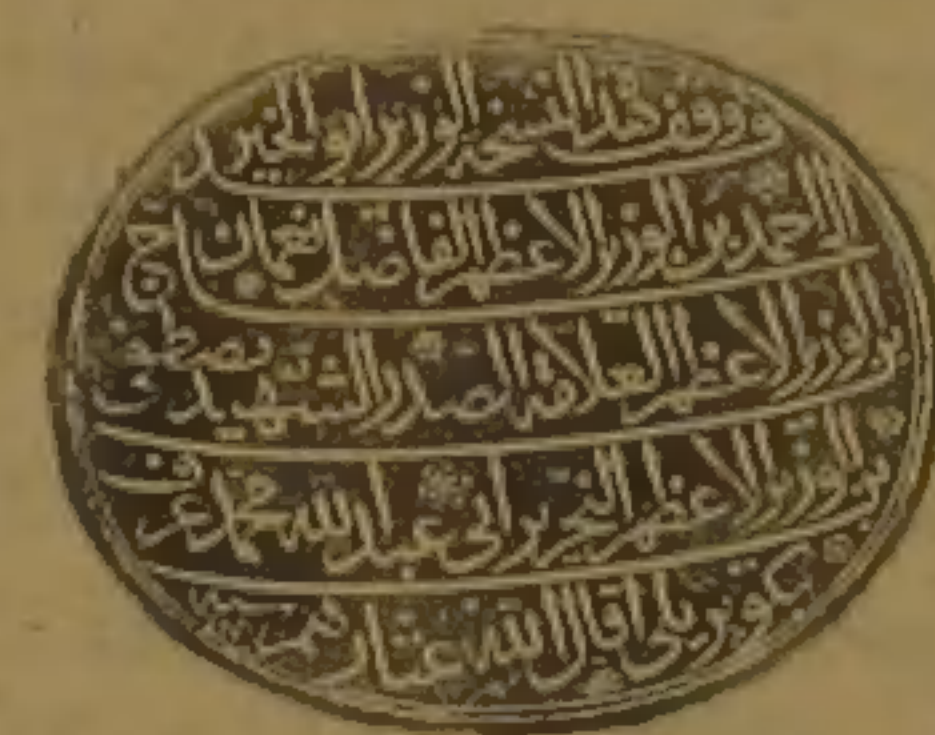 و وقف هذه النسخة الوزير ابو الخير
الحاج احمد بن الوزير الاعظم الفاضل نعمان
بن الوزير الاعظم العلامة الصدر الشهيد مصطفى
بن الوزير الاعظم النحرير ابى عبد الله محمد عرف
بكوپريلى اقال الله عثارهم